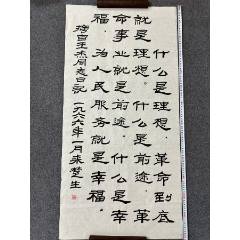 什么是理想，革命到底
就是理想。什么是前途，革
命事业就是前途。什么是幸
福，为人民服务就是幸福。
摘自王杰同志日记 一九六六年一月来楚生